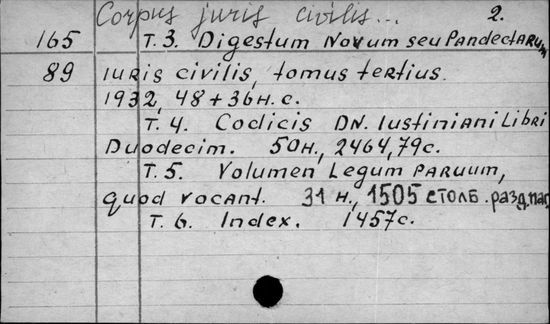 Corpus juris civilis... 2.
165 Т. 3. Digestum Novum seu Pandectarum
89 iuris civilis, tomus tertius.
1932, 48 + 36 н. с.
Т. 4. Codicis DN. Iustiniani Libri
Duodecim. 50 н., 2464, 79 с.
Т. 5. Volumen Legum paruum,
quod vocant. 31 н., 1505 столб. разд. паг.
Т. 6. Index. 1457 с.